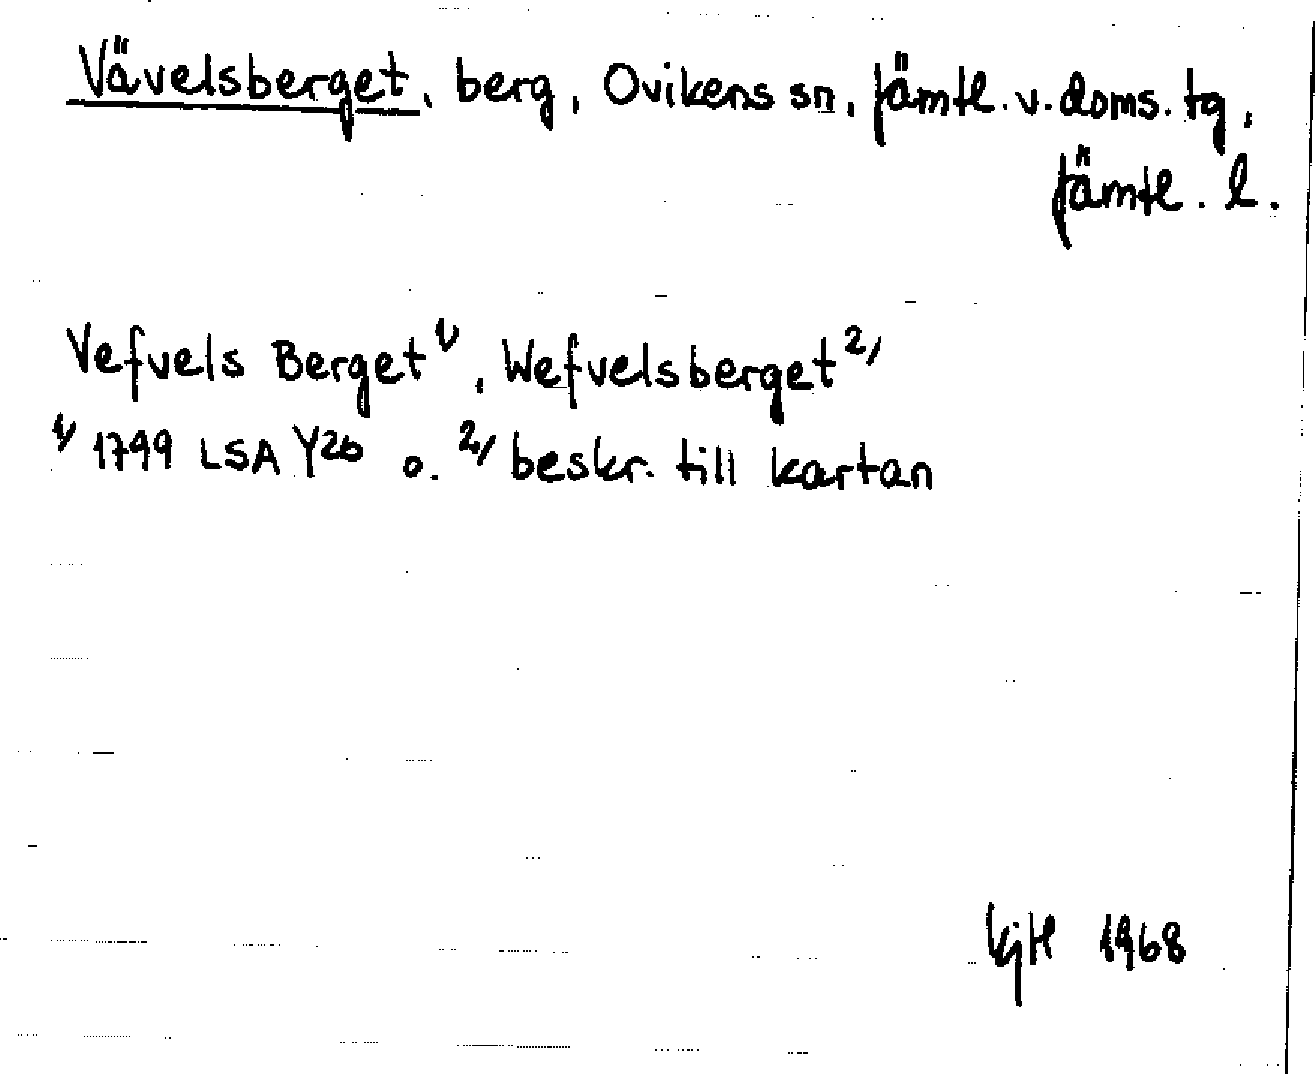 Vävelsberget, berg, Ovikens sn, Jämtl. v. doms. tg,
Jämtl. l.
Vefvels Berget 1/, Wefvelsberget 2/
1/ 1799 LSA Y26 o. 2/ beskr. till kartan
1968